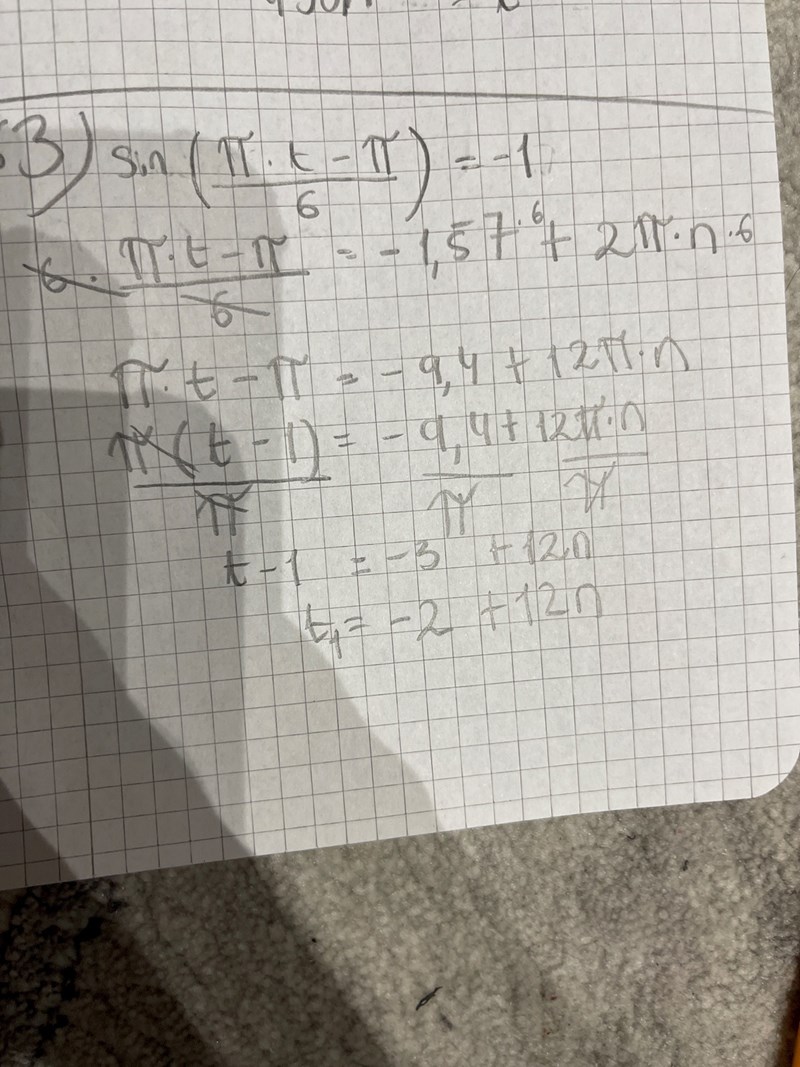 3) sin(π·t-π/6) = -1
6·π·t-π/6 = -1,57·6 + 2π·n·6
π·t-π = -9,4 + 12π·n
π(t-1)/π = -9,4/π + 12π·n/π
t-1 = -3 + 12n
t₁= -2 + 12n